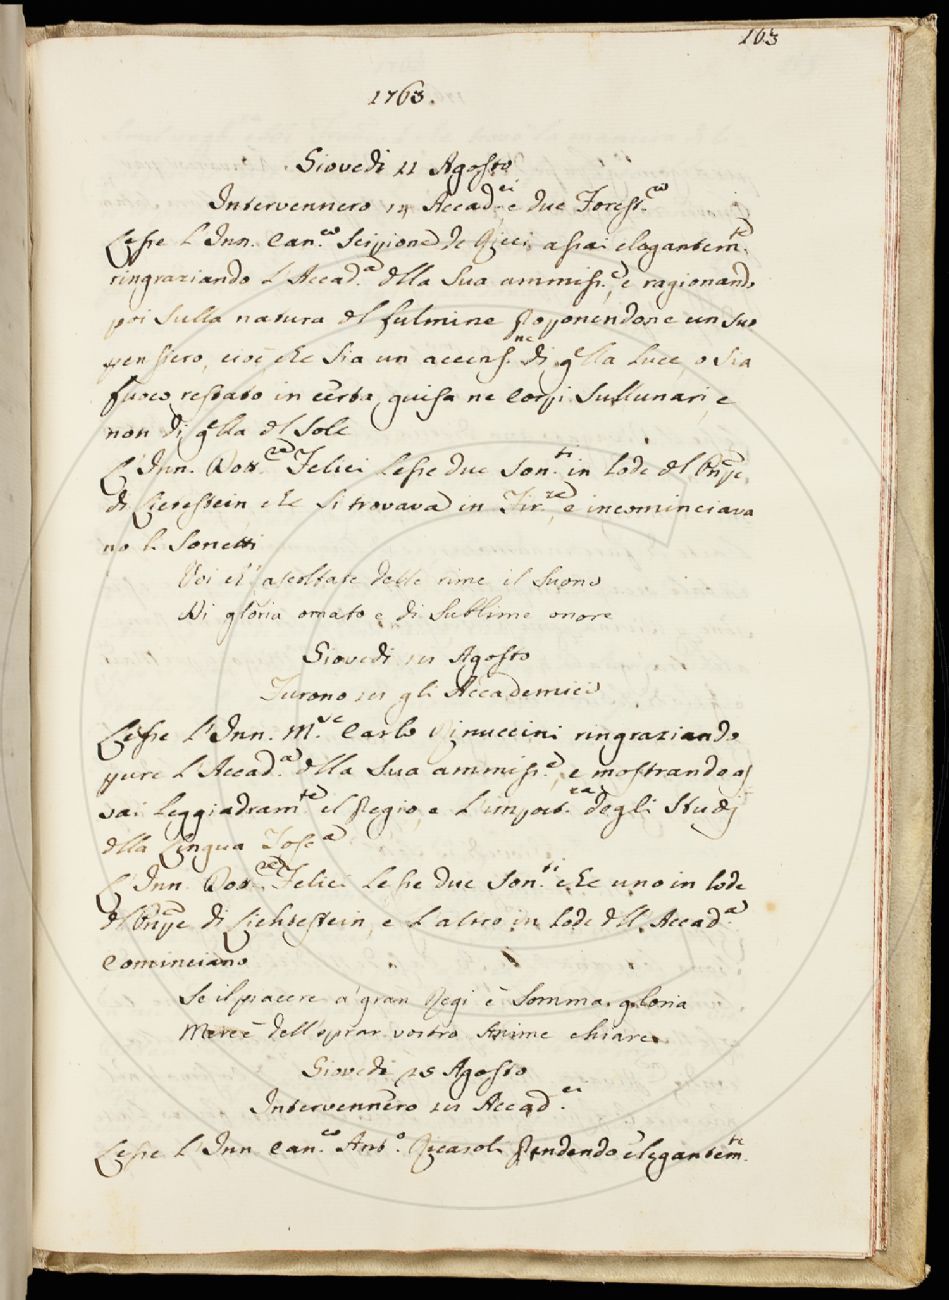 163
1763.
Giovedi 11 Agosto
Intervennero 14 Accad.ci e due Forest.
Lesse l'Inn. Can.co Scipione de Ricci assai elegantem.te
ringraziando l'Accad.a della sua ammiss.e, e ragionando
poi sulla natura del fulmine proponendone un suo
pensiero, cioè che sia un accens.ne di qlla luce, o sia
fuoco restato in certa guisa ne corpi sullunari, e
non di qlla del Sole
L'Inn. Dott.re Felici lesse due Son.ti in lode del Pnpe
di Lictestein, che si trovava in Fir.ze, e incominciava
no li Sonetti
Voi ch' ascoltate delle rime il suono
Di gloria ornato e di sublime onore
Giovedi Agosto
Furono gli Accademici
Lesse l'Inn. M.se Carlo Rinuccini ringraziando
pure l'Accad.a della sua ammiss.e, e mostrando as
sai leggiadram.te il pregio, e l'import.za degli Studj
della Lingua Tosc.a
L'Inn. Dott.re Felici lesse due Son.ti che uno in lode
del Pnpe di Lichtestein, e l'altro in lode dell'Accad.a
Cominciano
Se il piacere a' gran Regi è somma gloria
Mercè dell'oprar vostro Anime chiare
Giovedi 25 Agosto
Intervennero Accad.ci
Lesse l'Inn. Can.co Ant.o Ricasoli prendendo elegantem.te